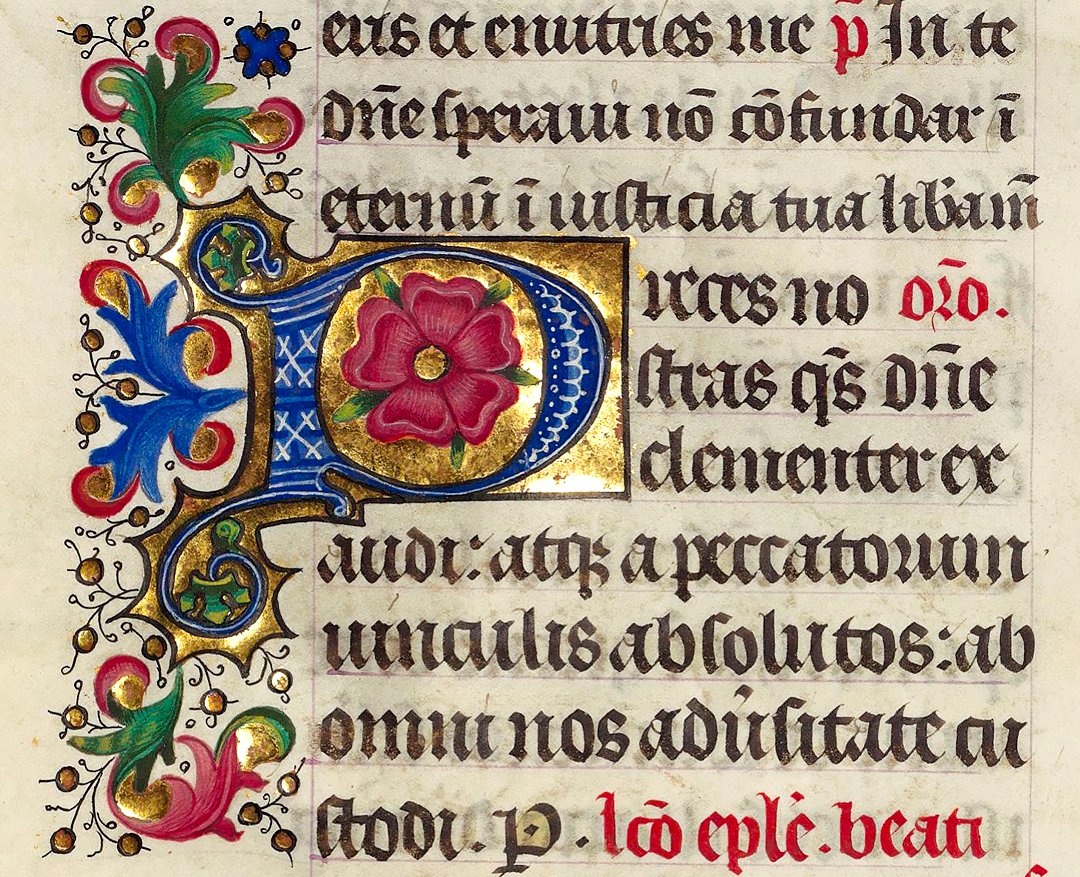 eris et enutries me p̄ In te
dn̄e speraui nō cōfundar ī
eternū ī iusticia tua libam̄
Preces no or̄o.
stras q̄s dn̄e
clementer ex
audi: atqꝫ a peccatorum
uinculis absolutos: ab
omni nos adűsitate cu
stodi. P. lcō epl̄e. beati